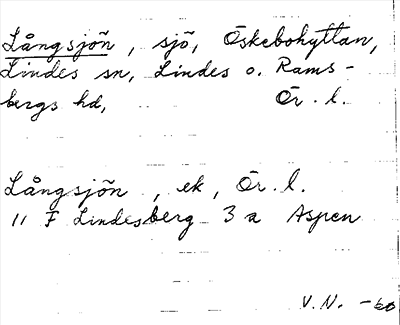 Långsjön, sjö, Öskebohyttan,
Lindes sn, Lindes o. Rams-
bergs hd, Ör. l.
Långsjön, ek, Ör. l.
11 F Lindesberg 3 a Aspen
V.N. -60